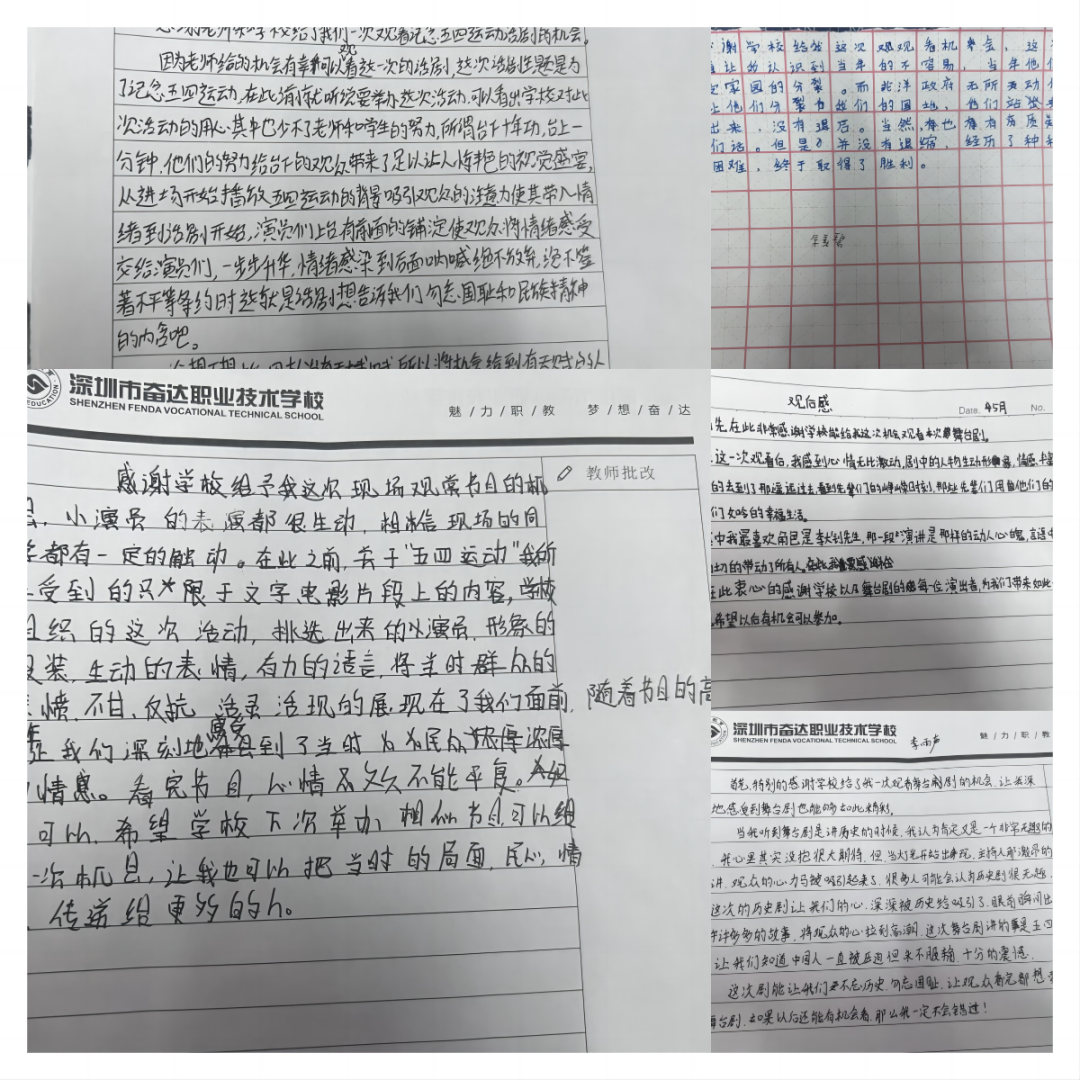 因为老师给的机会有幸可以观看这一次的话剧,这次话剧主题是为
了记念五四运动,在此编排就听说要举办这次活动,可以看出学校对此
次活动的用心.其中也少不了老师和学生的努力,所谓台下十年功,台上一
分钟,他们的努力给台下的观众带来了足以让人惊艳的视觉盛宴,
从进场开始播放五四运动的背景吸引观众的注意力使其带入情
绪到话剧开始,演员们上台有前面的铺淀使观众将情绪感受
交给演员们,一步步升华,情绪感染到后面呐喊绝不放弃,绝不签
著不平等条约时这就是话剧想告诉我们勿忘国耻和民族精神
的内含吧。
谢学校给我这次观看机会,这
认识到当年的不容易,当年他
家国的分裂。而北洋政府无所
他们分裂我们的国地,他们站
出来,没有退后。当然,有
们话。但是并没有退缩,经历了种
困难,终于取得了胜利。
深圳市奋达职业技术学校
SHENZHEN FENDA VOCATIONAL TECHNICAL SCHOOL
魅/力/职/教 梦/想/奋/达
教师批改
感谢学校给予我这次现场观赏节目的机
小演员的表演都很生动,相信现场的同
都有一定的触动。在此之前,关于"五四运动"我所
受到的只限于文字电影片段上的内容,学校
组织的这次活动,挑选出来的小演员,形象的
服装,生动的表情,有力的语言,将当时群众的
愤,不甘,反抗,活灵活现的展现在了我们面前,随着节目的高
让我们深刻地感受到了当时民众浓厚
情感。看完节目,心情久久不能平复。如
可以,希望学校下次举办相似节目可以给
次机会,让我也可以把当时的局面,民心,情
传递给更多的人。
观后感
Date. 4/5月 No.
先,在此非常感谢学校能给我这次机会观看本次舞台剧。
这一次观看后,我感到心情无比激动,剧中的人物生动形象,情感丰富
的去到了那遥远过去,看到先辈们的峥嵘时刻,那些先辈们用自他们的
们的幸福生活。
中我最喜欢角色是李大钊先生,那一段演讲是那样的动人心魄,言语中
切的带动了所有人,在此我感谢
在此衷心的感谢学校以及舞台剧的每一位演出者,为我们带来如此
希望以后有机会可以参加。
深圳市奋达职业技术学校
SHENZHEN FENDA VOCATIONAL TECHNICAL SCHOOL
魅/力/职/教
特别的感谢学校给了我一次观看舞台剧的机会,让我深
地感受到舞台剧也能够如此精彩。
当我听到舞台剧是讲历史的时候,我认为肯定又是一个非常无趣的
我心里其实没抱很大期待,但,当灯光开始出现,主持人那激昂的
讲,观众的心力马被吸引起来了,很多人可能会认为历史剧很无趣,
这次的历史剧让我们的心,深深被历史给吸引了,眼前瞬间出
许许多多的故事,将观众的心拉到高潮,这次舞台剧讲的事是五四
让我们知道中国人一直被压迫但未不服输,十分的震撼,
这次剧能让我们不忘历史,勿忘国耻,让观众看完都想
舞台剧,如果以后还能有机会看,那么我一定不会错过!